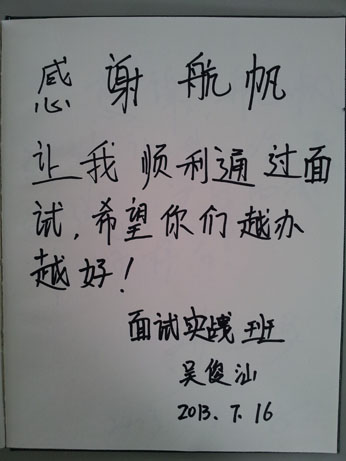 感谢航帆
让我顺利通过面
试,希望你们越办
越好!
面试实战班
吴俊汕
2013.7.16